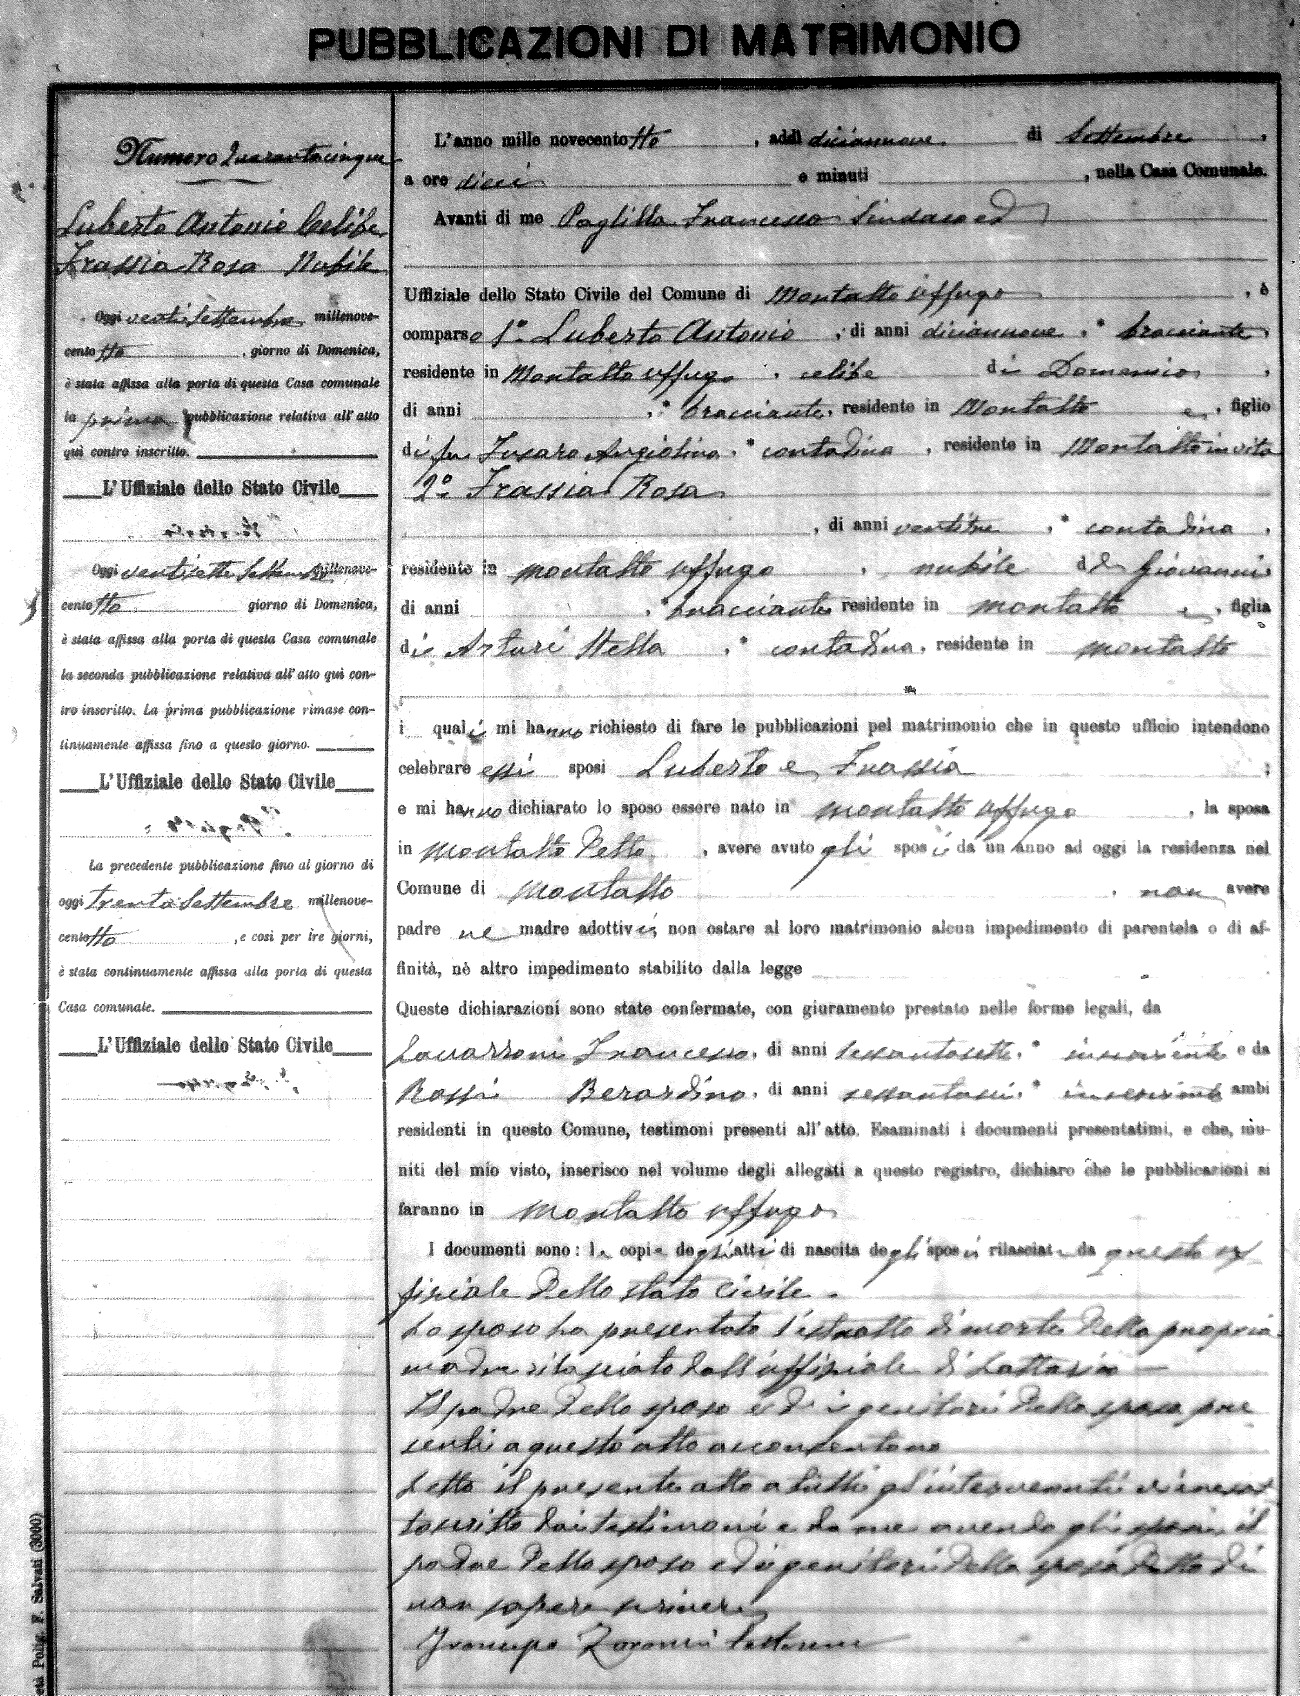 PUBBLICAZIONI DI MATRIMONIO
Numero Quarantacinque
Luberto Antonio Celibe
Frassia Rosa Nubile
Oggi venti Settembre millenove-
cento tto, giorno di Domenica,
è stata affissa alla porta di questa Casa comunale
la prima pubblicazione relativa all'atto
qui contro inscritto.
L'Uffiziale dello Stato Civile
Oggi ventisette Settembre millenove-
cento tto giorno di Domenica,
è stata affissa alla porta di questa Casa comunale
la seconda pubblicazione relativa all'atto qui con-
tro inscritto. La prima pubblicazione rimase con-
tinuamente affissa fino a questo giorno.
L'Uffiziale dello Stato Civile
La precedente pubblicazione fino al giorno di
oggi trenta Settembre millenove-
cento tto, e così per tre giorni,
è stata continuamente affissa alla porta di questa
Casa comunale.
L'Uffiziale dello Stato Civile
L'anno mille novecento tto, addì diciannove di Settembre,
a ore dieci e minuti, nella Casa Comunale.
Avanti di me Francesco Sindaco ed
Uffiziale dello Stato Civile del Comune di Montalto Uffugo, è
comparso 1º Luberto Antonio, di anni diciannove, bracciante,
residente in Montalto Uffugo, celibe di Domenico,
di anni, bracciante, residente in Montalto e, figlio
di fu Fusaro Angiolina, contadina, residente in Montalto in vita
2º Frassia Rosa
, di anni ventitre, contadina,
residente in Montalto Uffugo, nubile di Giovanni
di anni, bracciante residente in Montalto e, figlia
di Arturi Stella, contadina, residente in Montalto
i quali mi hanno richiesto di fare le pubblicazioni pel matrimonio che in questo ufficio intendono
celebrare essi sposi Luberto e Frassia;
e mi hanno dichiarato lo sposo essere nato in Montalto Uffugo, la sposa
in Montalto Detto, avere avuto gli sposi da un anno ad oggi la residenza nel
Comune di Montalto, non avere
padre ne madre adottivi, non ostare al loro matrimonio alcun impedimento di parentela o di af-
finità, nè altro impedimento stabilito dalla legge
Queste dichiarazioni sono state confermate, con giuramento prestato nelle forme legali, da
Francesco, di anni sessantasette, inserviente e da
Rossi Berardino, di anni sessantasei, inserviente ambi
residenti in questo Comune, testimoni presenti all'atto. Esaminati i documenti presentatimi, e che, mu-
niti del mio visto, inserisco nel volume degli allegati a questo registro, dichiaro che le pubblicazioni si
faranno in Montalto Uffugo
I documenti sono: le copie degli atti di nascita degli sposi rilasciate da questo uf-
fiziale dello stato civile.
Lo sposo ha presentato l'estratto di morte della propria
madre rilasciato dall'uffiziale di Lattarico
Il padre dello sposo ed i genitori della sposa pre
senti a questo atto acconsentono
Letto il presente atto a tutti gl'intervenuti
dai testimoni e da me avendo gli sposi il
padre dello sposo ed i genitori della sposa detto di
non sapere scrivere
età Polig. F. Salvati (3000)